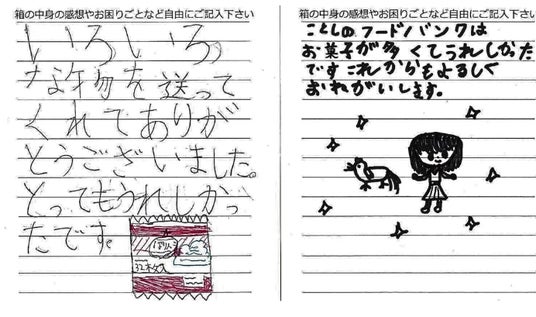 箱の中身の感想やお困りごとなど自由にご記入下さい
いろいろ
な物を送って
くれてありが
とうございました。
とってもうれしかっ
たです。
32枚入
箱の中身の感想やお困りごとなど自由にご記入下さい
ことしのフードバンクは
お菓子が多くてうれしかった
ですこれからもよろしく
おねがいします。